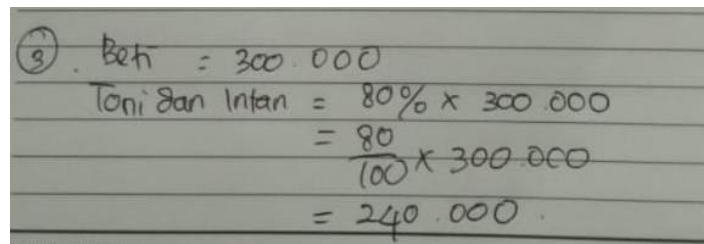 ③. Beti = 300.000
Toni dan Intan = 80% × 300.000
= 80/100 × 300.000
= 240.000.